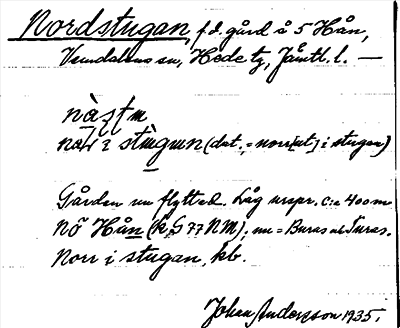 Nordstugan, f.d. gård å 5 Hån,
Vemdalens sn, Hede tg, Jämtl. l. —
i stùgun (dat., = norr[ut] i stugan)
Gården nu flyttad. Låg urspr. c:a 400 m
nö Hån (k, G 77 NM), nu = Buras
Norr i stugan, kb.
Johan Andersson 1935.